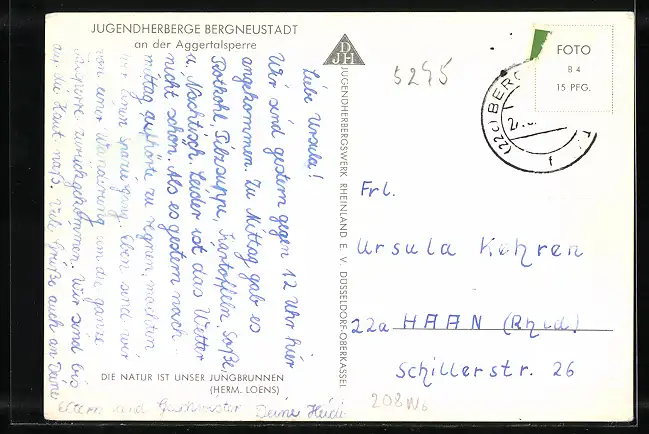 JUGENDHERBERGE BERGNEUSTADT
an der Aggertalsperre
Liebe Ursula!
Wir sind gestern gegen 12 Uhr hier
angekommen. Zu Mittag gab es
Rotkohl, Pilzsuppe, Kartoffeln, Soße,
u. Nachtisch. Leider ist das Wetter
nicht schön. Als es gestern nach-
mittag aufhörte zu regnen, machten
wir einen Spaziergang. Eben sind wir
von einer Wanderung um die ganze
Talsperre zurückgekommen. Wir sind bis
auf die Haut naß. Viele Grüße auch an Deine
Eltern und Geschwister Deine Heidi
DIE NATUR IST UNSER JUNGBRUNNEN
(HERM. LOENS)
DJH
JUGENDHERBERGSWERK RHEINLAND E. V. DÜSSELDORF-OBERKASSEL
5245
FOTO
B 4
15 PFG.
(22c) BERG
Frl.
Ursula Kohren
22a HAAN (Rhld)
Schillerstr. 26
208